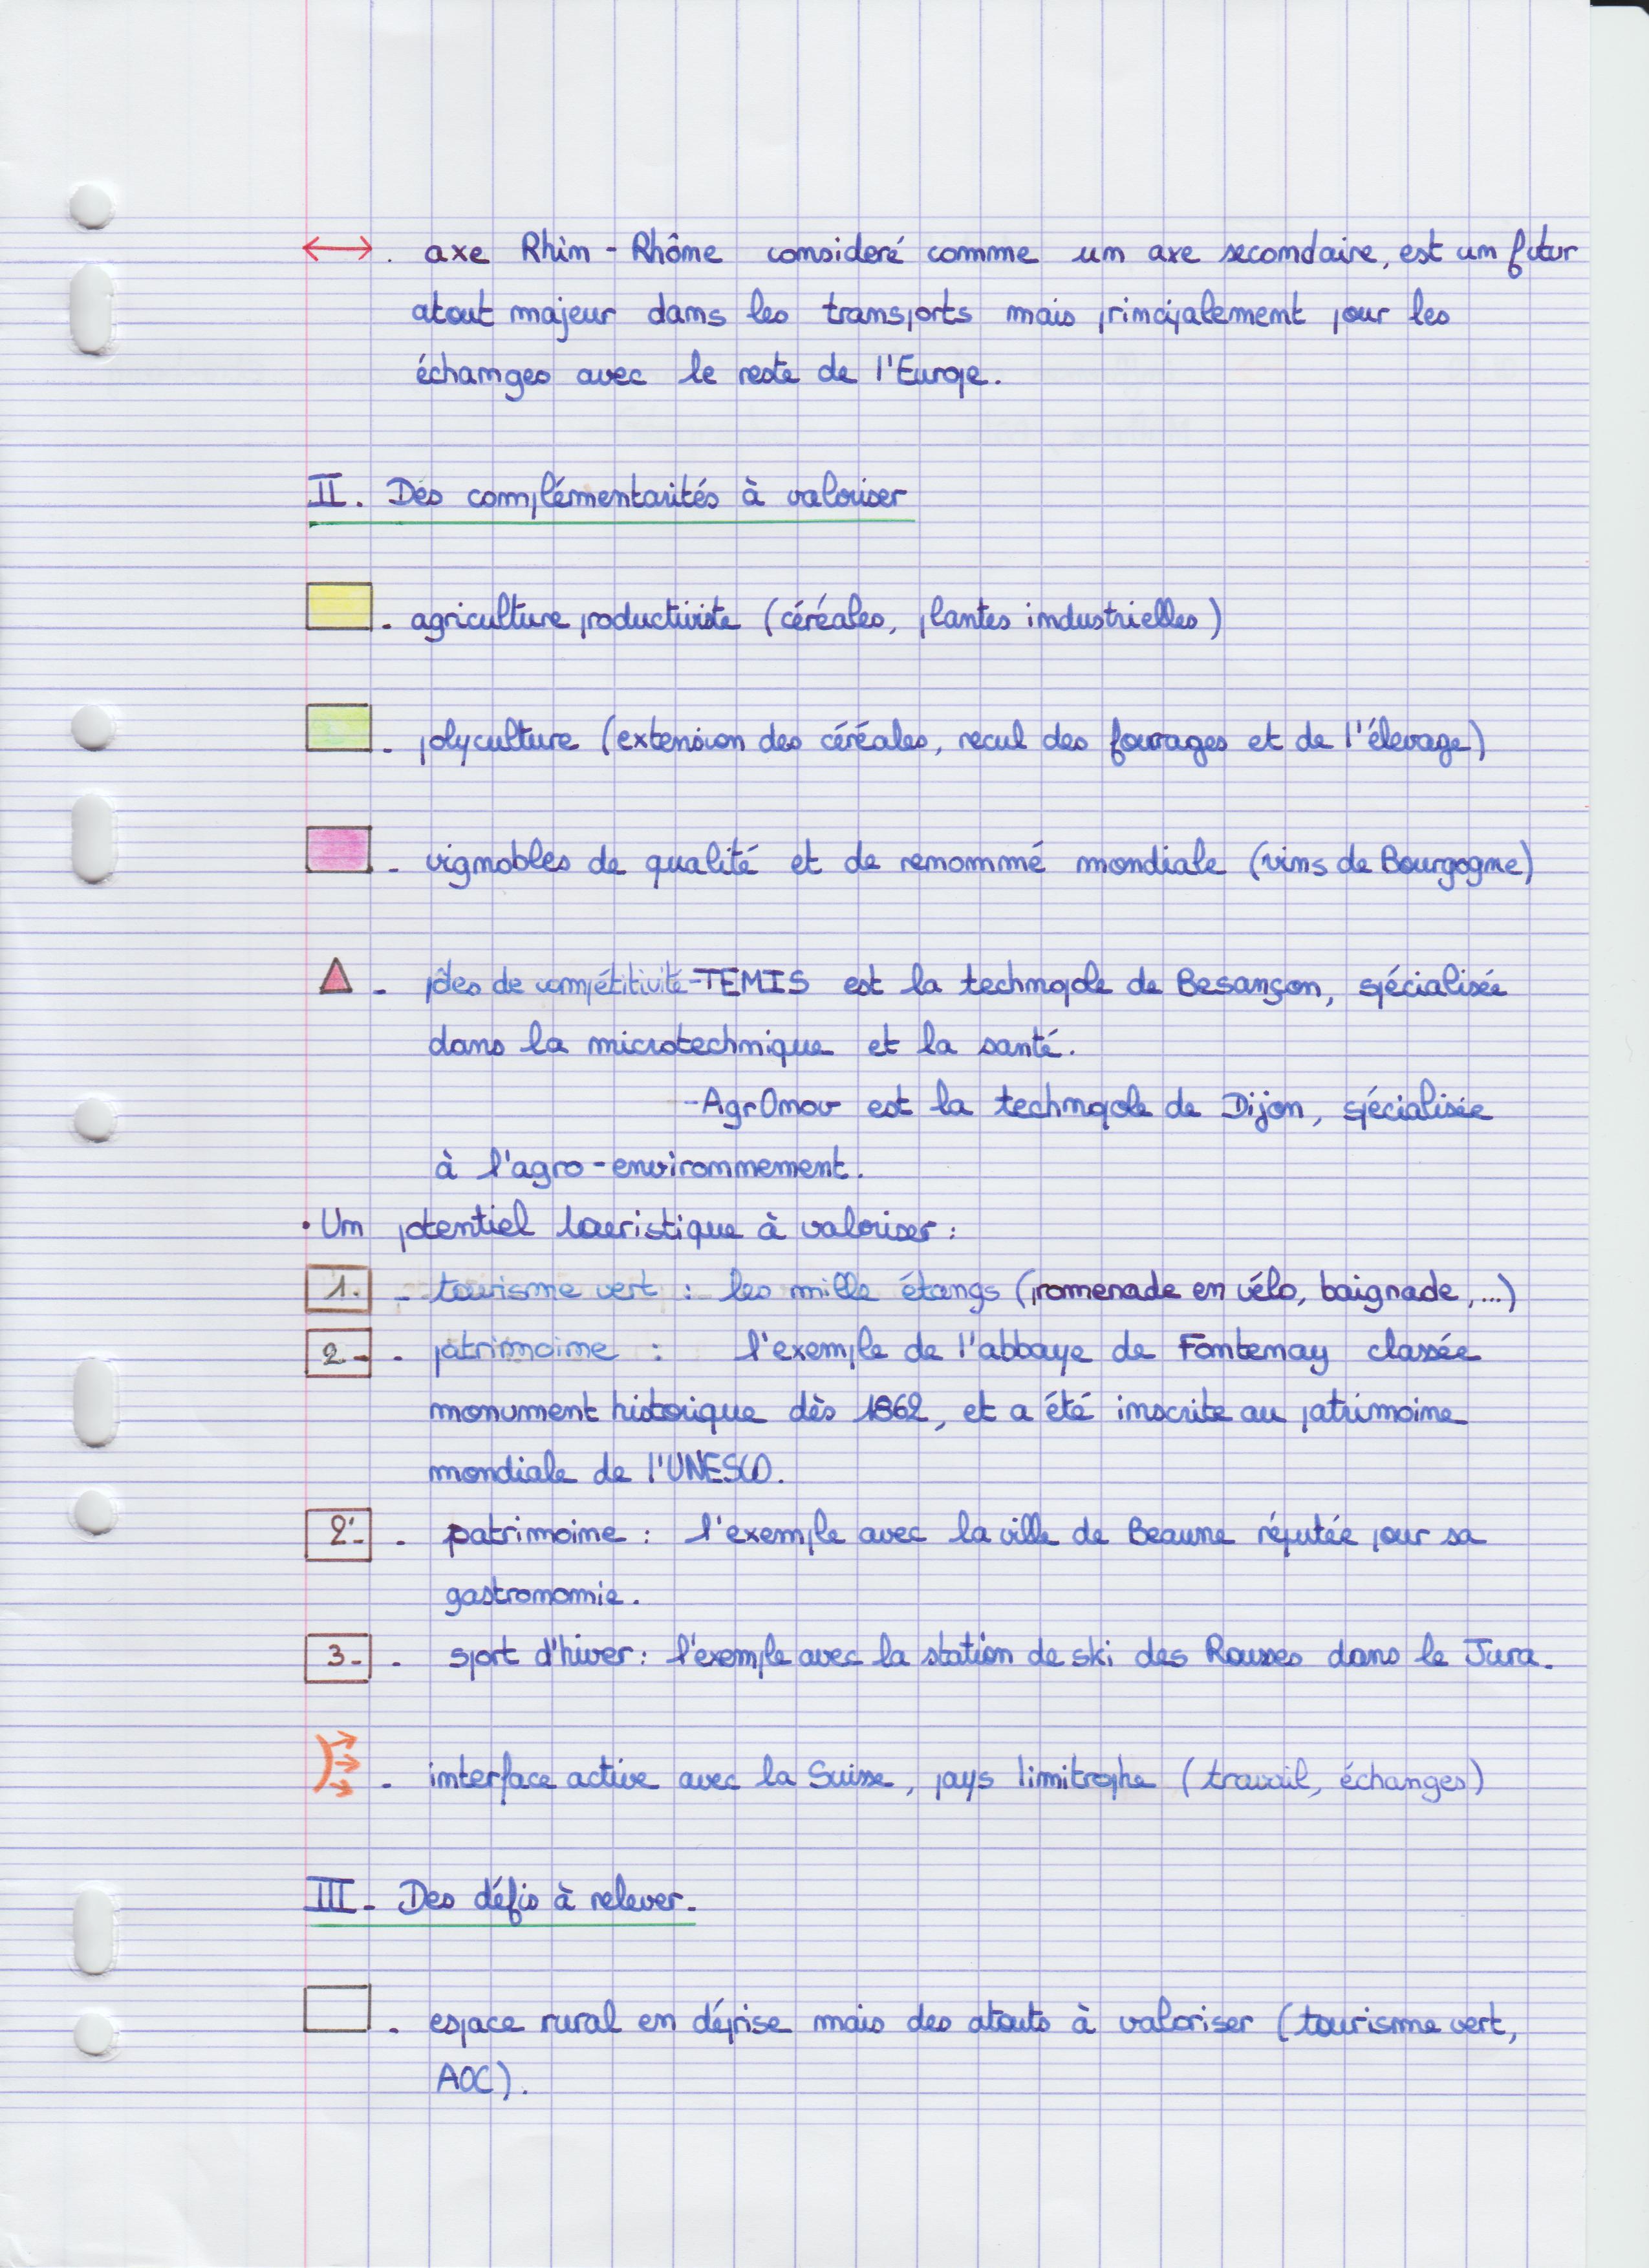 . axe Rhin - Rhône consideré comme un axe secondaire, est un futur
atout majeur dans les transports mais principalement pour les
échanges avec le reste de l'Europe.
II. Des complémentarités à valoriser
- agriculture productiviste (céréales, plantes industrielles)
- polyculture (extension des céréales, recul des fourrages et de l'élevage)
- vignobles de qualité et de renommé mondiale (vins de Bourgogne)
- pôles de compétitivité - TEMIS est la technopole de Besançon, spécialisée
dans la microtechnique et la santé.
- AgrOnov est la technopole de Dijon, spécialisée
à l'agro-environnement.
• Un potentiel touristique à valoriser :
1. - tourisme vert : les mille étangs (promenade en vélo, baignade, ...)
2 - - patrimoine : l'exemple de l'abbaye de Fontenay classée
monument historique dès 1862, et a été inscrite au patrimoine
mondiale de l'UNESCO.
2' - - patrimoine : l'exemple avec la ville de Beaune réputée pour sa
gastronomie.
3 - - sport d'hiver : l'exemple avec la station de ski des Rousses dans le Jura.
- interface active avec la Suisse, pays limitrophe (travail, échanges)
III - Des défis à relever.
- espace rural en déprise mais des atouts à valoriser (tourisme vert,
AOC).